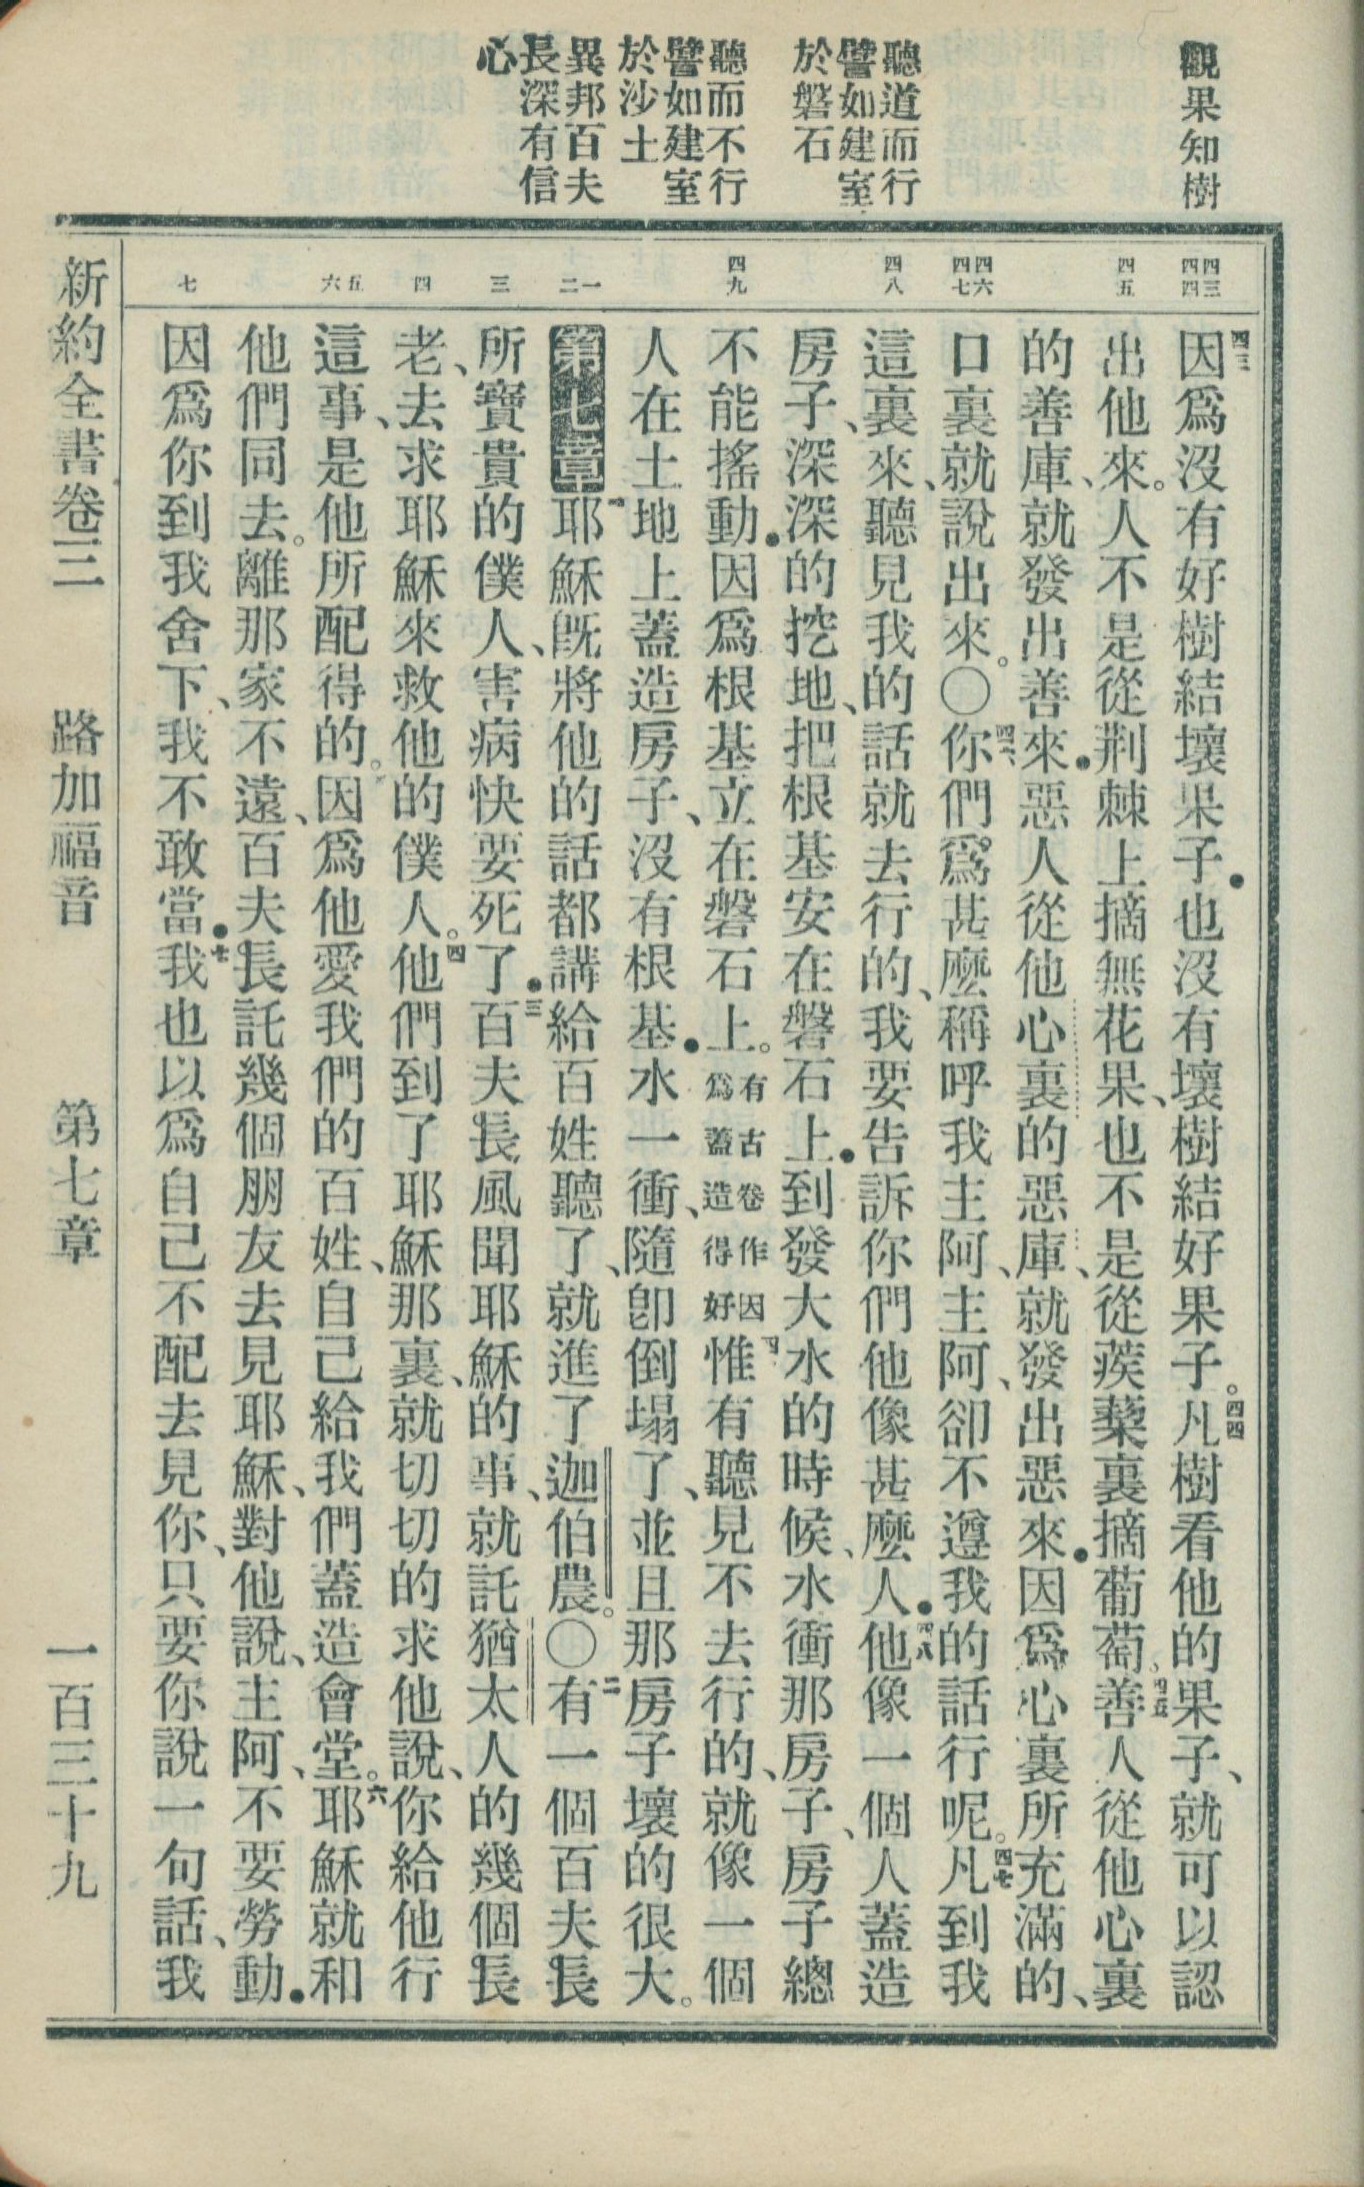 觀果知樹
聽道而行
譬如建室
於磐石
聽而不行
譬如建室
於沙土
異邦百夫
長深有信
心
四三 四四 四五 四六 四七 四八 四九 一 二 三 四 五 六 七
四三因爲沒有好樹結壞果子．也沒有壞樹結好果子。四四凡樹看他的果子、就可以認
出他來。人不是從荆棘上摘無花果、也不是從蒺藜裏摘葡萄、四五善人從他心裏
的善庫、就發出善來．惡人從他心裏的惡庫、就發出惡來．因爲心裏所充滿的、
口裏就說出來。〇四六你們爲甚麼稱呼我主阿、主阿、卻不遵我的話行呢。四七凡到我
這裏來、聽見我的話就去行的、我要告訴你們他像甚麼人．四八他像一個人蓋造
房子、深深的挖地、把根基安在磐石上．到發大水的時候、水衝那房子、房子總
不能搖動．因爲根基立在磐石上。有古卷作因爲蓋造得好四九惟有聽見不去行的、就像一個
人在土地上蓋造房子、沒有根基．水一衝、隨卽倒塌了、並且那房子壞的很大。
第七章 一耶穌旣將他的話都講給百姓聽了、就進了迦伯農。〇二有一個百夫長
所寶貴的僕人、害病快要死了．三百夫長風聞耶穌的事、就託猶太人的幾個長
老、去求耶穌來救他的僕人。四他們到了耶穌那裏、就切切的求他說、你給他行
這事、是他所配得的。因爲他愛我們的百姓、自己給我們蓋造會堂。六耶穌就和
他們同去。離那家不遠、百夫長託幾個朋友去見耶穌、對他說、主阿、不要勞動．
因爲你到我舍下、我不敢當．七我也以爲自己不配去見你、只要你說一句話、我
新約全書卷三 路加福音 第七章 一百三十九